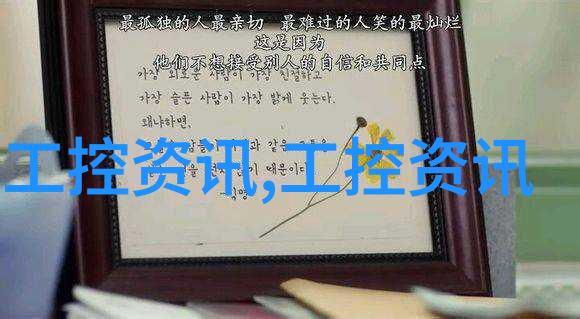 最孤独的人最亲切 最难过的人笑的最灿烂
这是因为
他们不想接受别人的自信和共同点
가장 외로운 사람이 가장 친절하고
가장 슬픈 사람이 가장 밝게 웃는다.
왜냐하면,
과 같은
때문이다
工控资讯,工控资讯